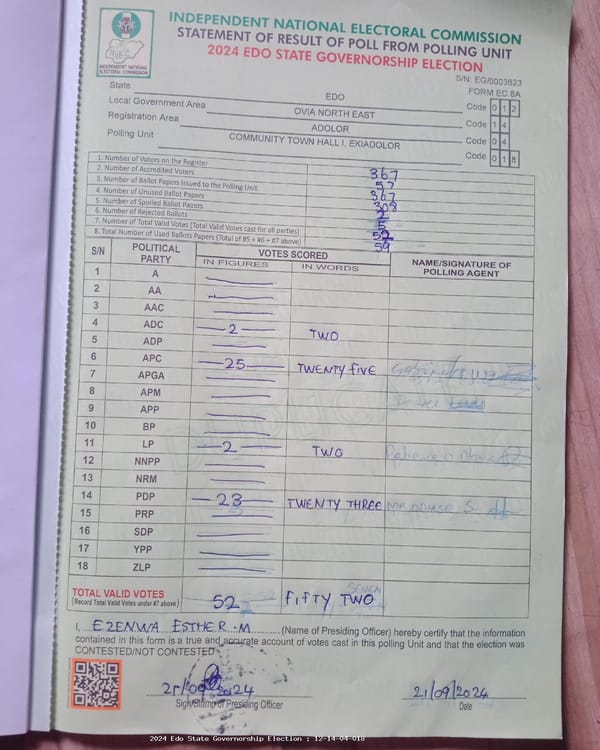 INDEPENDENT NATIONAL ELECTORAL COMMISSION
STATEMENT OF RESULT OF POLL FROM POLLING UNIT
2024 EDO STATE GOVERNORSHIP ELECTION
INEC
INDEPENDENT NATIONAL
ELECTORAL COMMISSION
S/N: EG/0003623
FORM EC 8A
State EDO Code 0 1 2
Local Government Area OVIA NORTH EAST Code 1 4
Registration Area ADOLOR Code 0 4
Polling Unit COMMUNITY TOWN HALL I, EKIADOLOR Code 0 1 8
1. Number of Voters on the Register 367
2. Number of Accredited Voters 57
3. Number of Ballot Papers Issued to the Polling Unit 367
4. Number of Unused Ballot Papers 308
5. Number of Spoiled Ballot Papers 2
6. Number of Rejected Ballots 5
7. Number of Total Valid Votes (Total Valid Votes cast for all parties) 52
8. Total Number of Used Ballots Papers (Total of #5 + #6 + #7 above) 59
S/N POLITICAL PARTY VOTES SCORED NAME/SIGNATURE OF POLLING AGENT
IN FIGURES IN WORDS
1 A
2 AA
3 AAC
4 ADC 2 TWO
5 ADP
6 APC 25 TWENTY FIVE
7 APGA
8 APM
9 APP
10 BP
11 LP 2 TWO
12 NNPP
13 NRM
14 PDP 23 TWENTY THREE
15 PRP
16 SDP
17 YPP
18 ZLP
TOTAL VALID VOTES 52 FIFTY TWO
(Record Total Valid Votes under #7 above)
I, EZENWA ESTHER.M (Name of Presiding Officer) hereby certify that the information
contained in this form is a true and accurate account of votes cast in this polling Unit and that the election was
CONTESTED/NOT CONTESTED
21/09/2024 21/09/2024
Sign/Stamp of Presiding Officer Date
2024 Edo State Governorship Election : 12-14-04-018